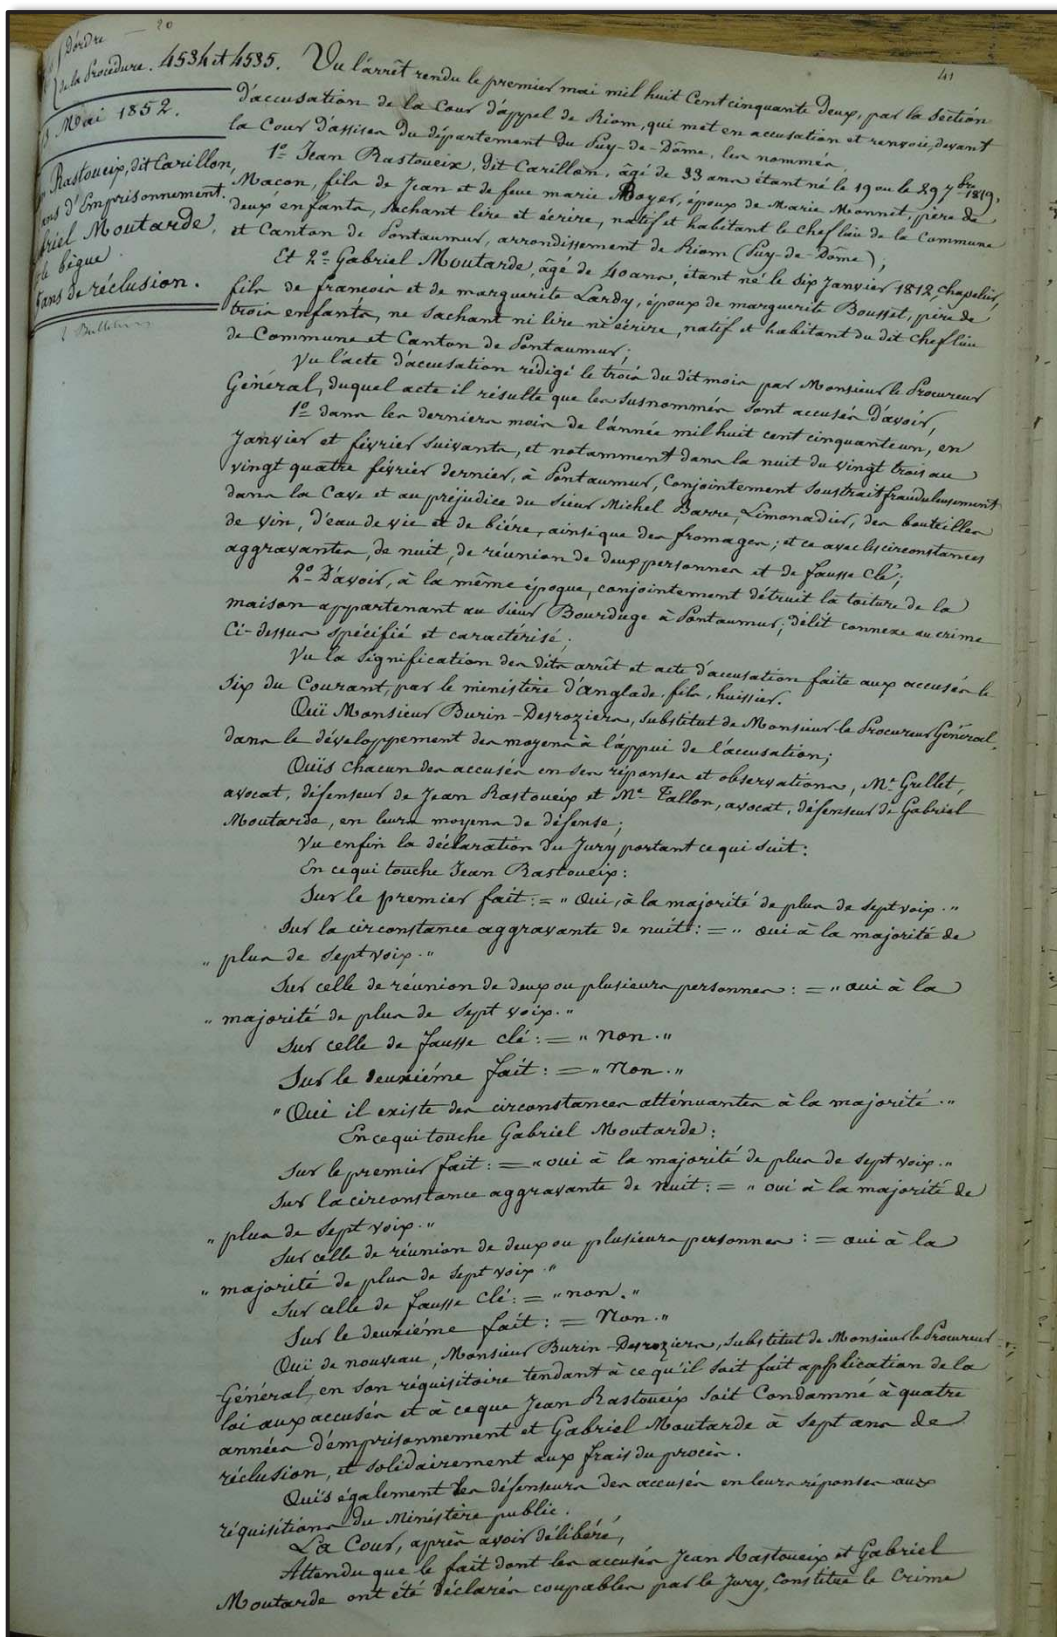 20
d'ordre
de la Procédure. 4534 et 4535.
41
Mai 1852.
Rastoueix, dit Carillon,
ans d'Emprisonnement.
briel Moutarde,
le bègue
ans de réclusion.
Vu l'arrêt rendu le premier mai mil huit Cent cinquante Deux, par la Section
d'accusation de la Cour d'appel de Riom, qui met en accusation et renvoie, devant
la Cour d'assises du département du Puy-de-Dôme, les nommés,
1º Jean Rastoueix, dit Carillon, âgé de 33 ans étant né le 19 ou le 29 7bre 1819,
Maçon, fils de Jean et de feue marie Boyer, époux de Marie Monnet, père de
deux enfants, sachant lire et écrire, natif et habitant le chef lieu de la Commune
et Canton de Pontaumur, arrondissement de Riom (Puy-de-Dôme);
Et 2º Gabriel Moutarde, âgé de 40 ans, étant né le Six Janvier 1812, chapelier,
fils de francois et de marguerite Lardy, époux de marguerite Bousset, père de
trois enfants, ne sachant ni lire ni écrire, natif et habitant du dit chef lieu
de Commune et Canton de Pontaumur;
Vu l'acte d'accusation rédigé le trois du dit mois par Monsieur le Procureur
Général, duquel acte il résulte que les susnommés sont accusés D'avoir,
1º dans les derniers mois de l'année mil huit cent cinquante un, en
Janvier et février suivants, et notamment dans la nuit du vingt trois au
vingt quatre février dernier, à Pontaumur, Conjointement soustrait frauduleusement
dans la Cave et au préjudice du Sieur Michel Barre, Limonadier, des bouteilles
de vin, d'eau de vie et de bière, ainsi que des fromages; et ce avec les circonstances
aggravantes, de nuit, de réunion de deux personnes et de fausse Clé;
2º D'avoir, à la même époque, conjointement détruit la toiture de la
maison appartenant au Sieur Bourduge à Pontaumur; délit connexe au crime
Ci-dessus spécifié et caractérisé;
Vu la Signification des dits arrêt et acte d'accusation faite aux accusés le
Six du Courant, par le ministère d'anglade fils, huissier.
Ouï Monsieur Burin-Desroziers, Substitut de Monsieur le Procureur Général,
dans le développement des moyens à l'appui de l'accusation;
Ouïs chacun des accusés en ses réponses et observations, Me Grellet,
avocat, défenseur de Jean Rastoueix et Me Tallon, avocat, défenseur de Gabriel
Moutarde, en leurs moyens de défense;
Vu enfin la déclaration du Jury portant ce qui suit:
En ce qui touche Jean Rastoueix:
Sur le premier fait: = " Oui, à la majorité de plus de sept voix."
Sur la circonstance aggravante de nuit: = " oui à la majorité de
" plus de sept voix."
Sur celle de réunion de deux ou plusieurs personnes: = " oui à la
" majorité de plus de sept voix."
Sur celle de fausse clé: = " non."
Sur le deuxième fait: = " Non."
" Oui il existe des circonstances atténuantes à la majorité."
En ce qui touche Gabriel Moutarde:
Sur le premier fait: = " oui à la majorité de plus de sept voix."
Sur la circonstance aggravante de nuit: = " oui à la majorité de
" plus de sept voix."
Sur celle de réunion de deux ou plusieurs personnes: = oui à la
" majorité de plus de sept voix."
Sur celle de fausse Clé: = " non."
Sur le deuxième fait: = Non."
Ouï de nouveau, Monsieur Burin-Desroziers, Substitut de Monsieur le Procureur-
Général, en son réquisitoire tendant à ce qu'il soit fait application de la
loi aux accusés et à ce que Jean Rastoueix soit Condamné à quatre
années d'emprisonnement et Gabriel Moutarde à sept ans de
réclusion, et solidairement aux frais du procès.
Ouïs également les défenseurs des accusés en leurs réponses aux
réquisitions du Ministère public.
La Cour, après avoir délibéré,
Attendu que le fait dont les accusés Jean Rastoueix et Gabriel
Moutarde ont été déclarés coupables par le Jury, constitue le Crime